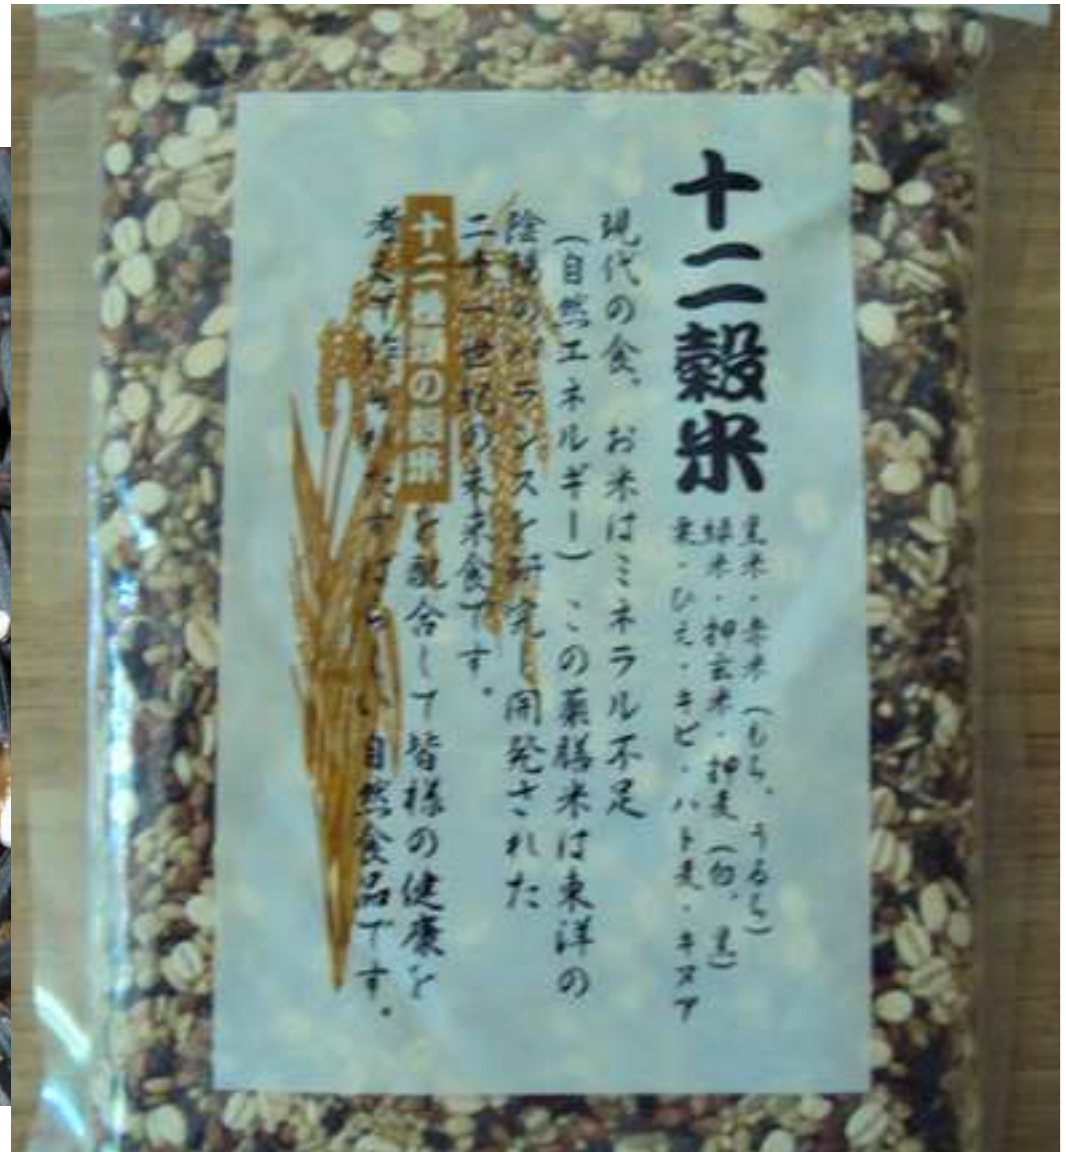 十二穀米
黒米・赤米(もち、うるち)
緑米・押玄米・押麦(白、黒)
粟・ひえ・キビ・ハト麦・キヌア
現代の食、お米はミネラル不足
(自然エネルギー)この薬膳米は東洋の
陰陽のバランスを研究し開発された
二十一世紀の未来食です。
十二種の穀米を配合して皆様の健康を
考えて作られたすばらしい自然食品です。